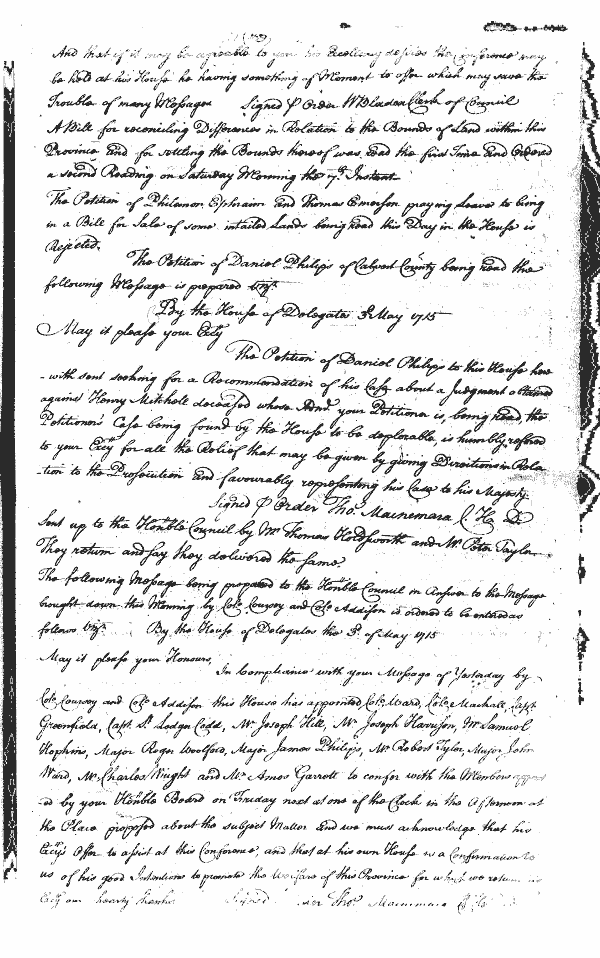 And that if it may be agreeable to you his Excellency desires the Conference may
be held at his House he having something of Moment to offer which may save the
Trouble of many Messages Signed P Order W Bladen Clerk of Council
A Bill for reconciling Differences in Relation to the Bounds of Land within this
Province and for settling the Bounds thereof was read the first Time and Ordered
a second Reading on Saturday Morning the 7th Instant
The Petition of Philemon, Ephraim and Thomas Emerson praying Leave to bring
in a Bill for Sale of some intailed Lands being read this Day in the House is
Rejected.
The Petition of Daniel Philips of Calvert County being read the
following Message is prepared Vizt.
By the House of Delegates 3 May 1715
May it please your Excy
The Petition of Daniel Philips to this House here
-with sent seeking for a Recommendation of his Case about a Judgment obtained
against Henry Mitchell deceased whose Admr. your Petitioner is, being read, the
Petitioner's Case being found by the House to be deplorable, is humbly referred
to your Excy for all the Relief that may be given by giving Directions in Rela
-tion to the Prosecution and favourably representing his Case to his Majesty.
Signed P Order Thos. Macnemara C. H. D
Sent up to the Honble Council by Mr. Thomas Holdsworth and Mr. Peter Taylor
They return and say they delivered the same.
The following Message being prepared to the Honble Council in Answer to the Message
brought down this Morning by Colo. Coursey and Colo. Addison is ordered to be entered as
follows Vizt. By the House of Delegates the 3d. of May 1715
May it please your Honours,
In Complyance with your Message of Yesterday by
Colo. Coursey and Colo. Addison this House has appointed Colo. Ward, Colo. Mackall, Capt.
Greenfield, Capt. St. Ledger Codd, Mr. Joseph Hill, Mr. Joseph Harrison, Mr. Samuel
Hopkins, Major Roger Woolford, Major James Philips, Mr. Robert Tyler, Major John
Ward, Mr. Charles Wright and Mr. Amos Garrett to confer with the Members appoint
ed by your Honble Board on Friday next at one of the Clock in the Afternoon at
the Place proposed about the subject Matter and we must acknowledge that his
Excys Offer to assist at this Conference, and that at his own House is a Confirmation to
us of his good Intentions to promote the Welfare of this Province for which we return
Excy our hearty thanks Signed Order Thos. Macnemara